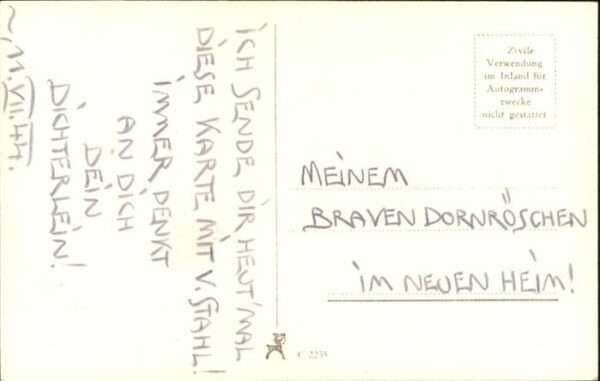 ICH SENDE DIR HEUT' MAL
DIESE KARTE MIT V. STAHL!
IMMER DENKT
AN DICH
DEIN
DICHTERLEIN!
~ 11.VII.44.
Zivile
Verwendung
im Inland für
Autogramm-
zwecke
nicht gestattet
MEINEM
BRAVEN DORNRÖSCHEN
IM NEUEN HEIM!
C 2238